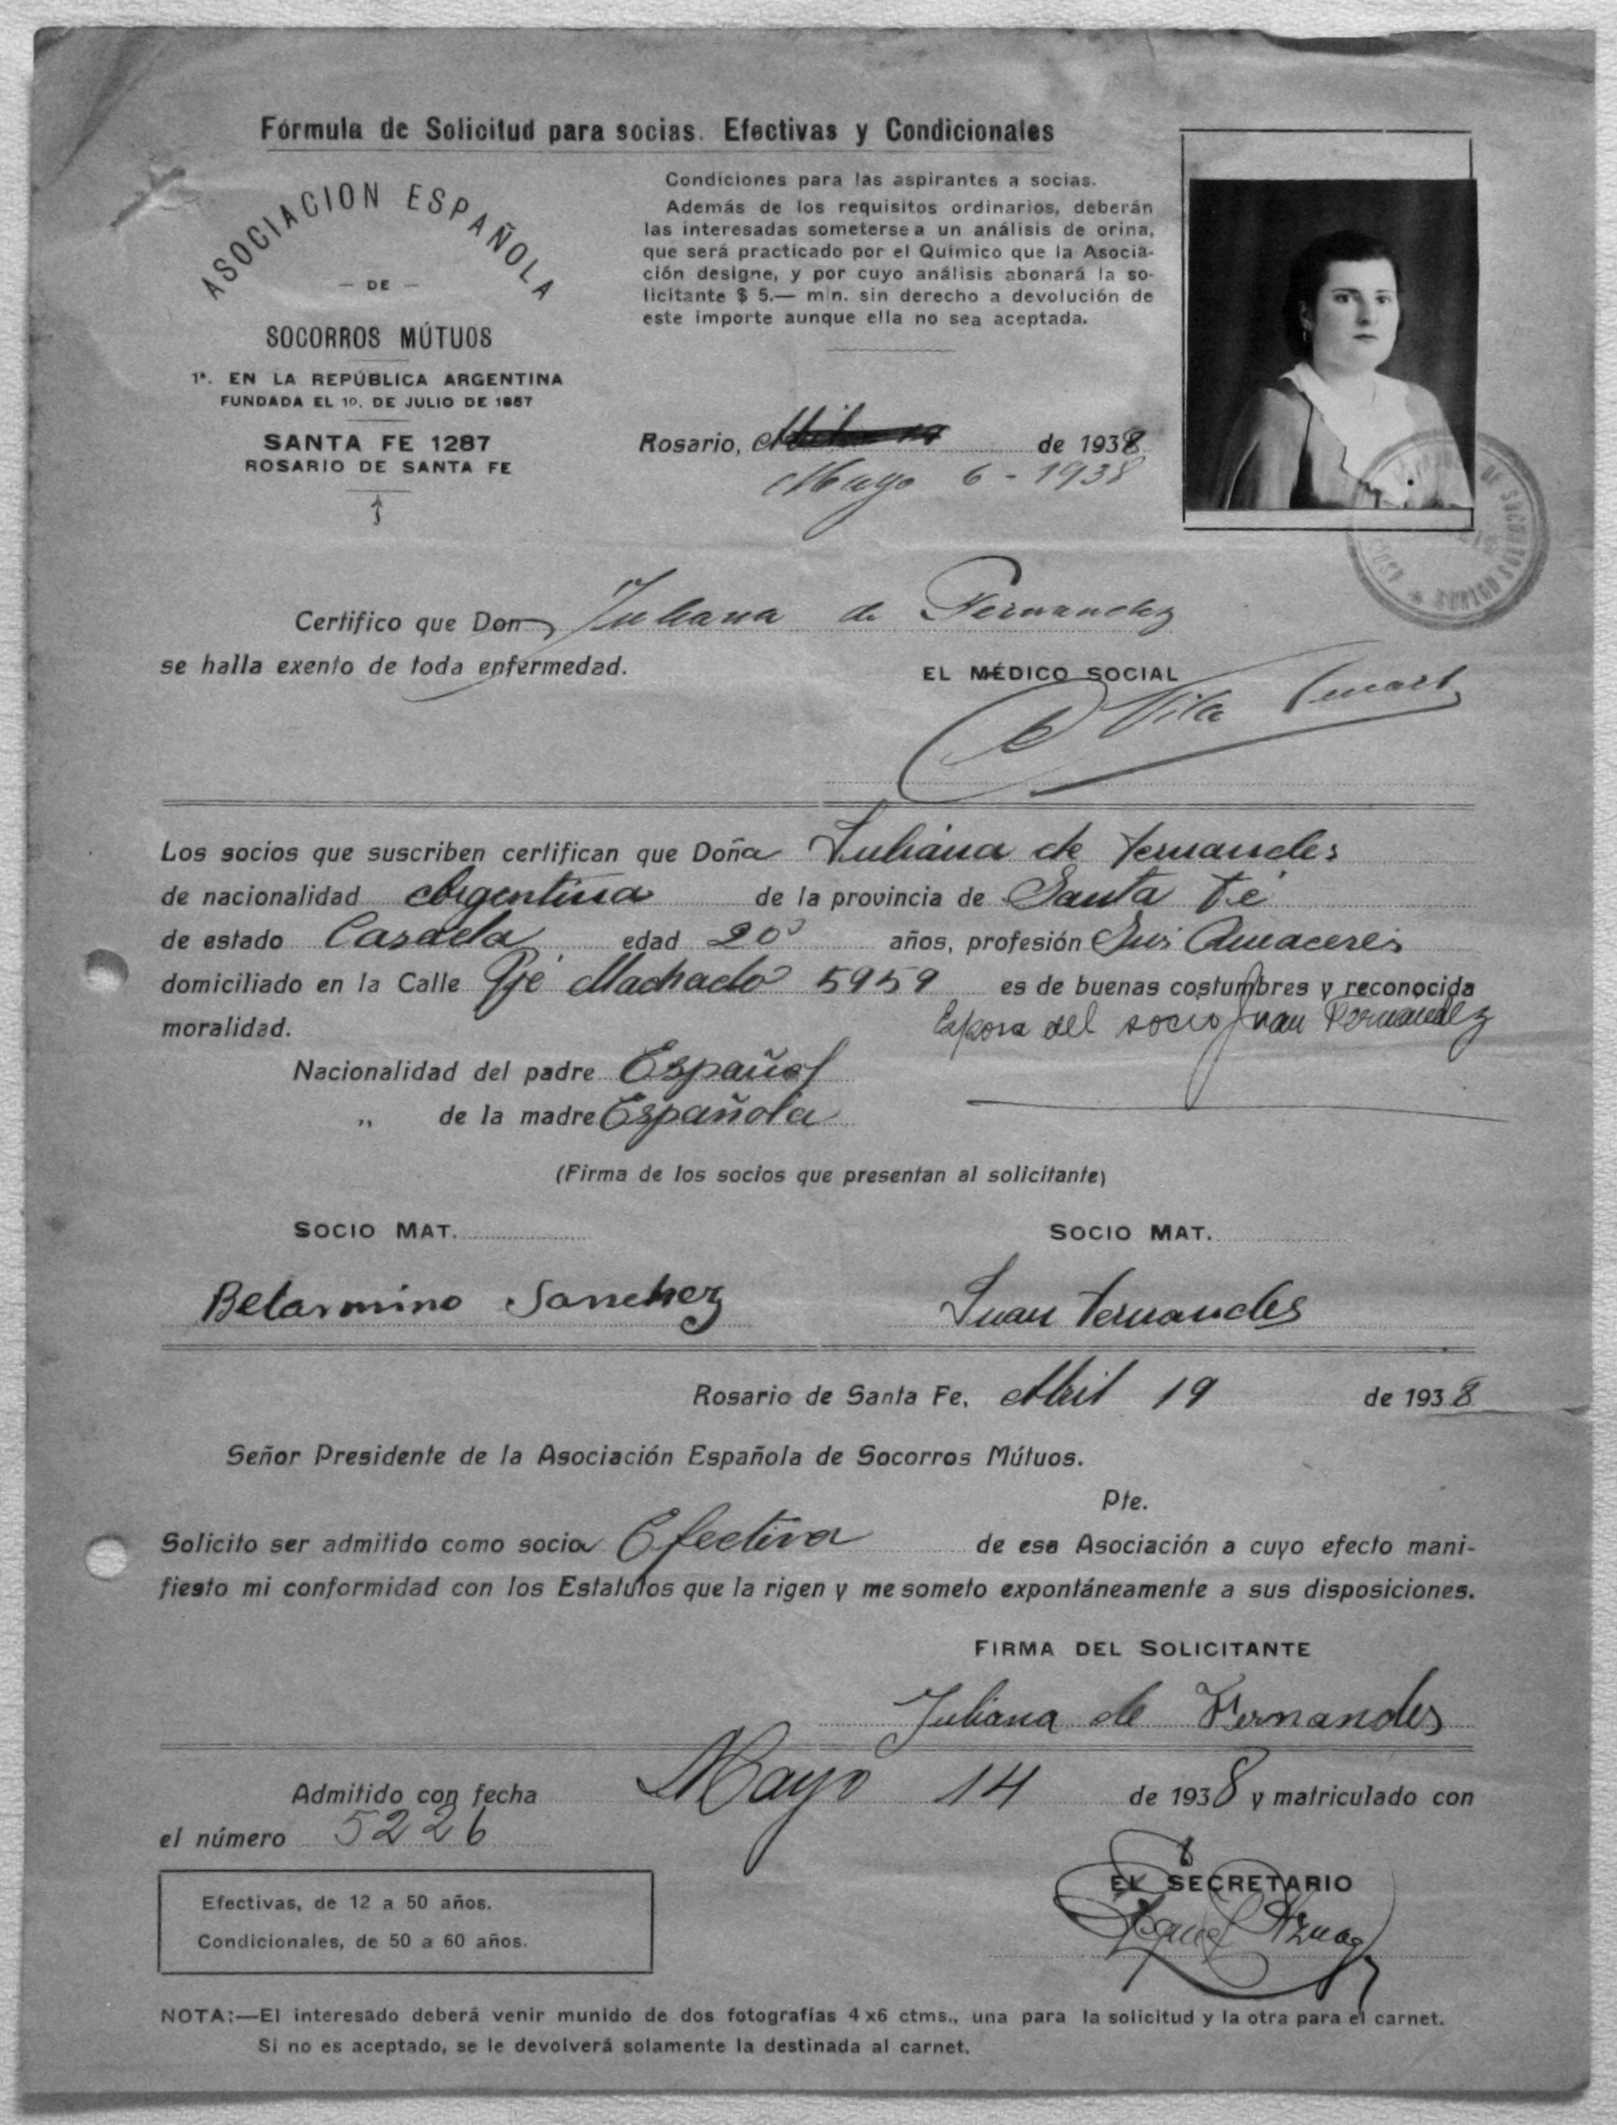 Fórmula de Solicitud para socias. Efectivas y Condicionales
ASOCIACION ESPAÑOLA
— DE —
SOCORROS MÚTUOS
1ª. EN LA REPÚBLICA ARGENTINA
FUNDADA EL 10. DE JULIO DE 1857
SANTA FE 1287
ROSARIO DE SANTA FE
Condiciones para las aspirantes a socias.
Además de los requisitos ordinarios, deberán
las interesadas someterse a un análisis de orina,
que será practicado por el Químico que la Asocia-
ción designe, y por cuyo análisis abonará la so-
licitante $ 5.— m/n. sin derecho a devolución de
este importe aunque ella no sea aceptada.
Rosario, de 1938
Mayo 6 - 1938
Certifico que Don Juliana de Fernandez
se halla exento de toda enfermedad.
EL MÉDICO SOCIAL
Vila
Los socios que suscriben certifican que Doña Juliana de Fernandes
de nacionalidad Argentina de la provincia de Santa Fé
de estado Casada edad 20 años, profesión Sus Quaceres
domiciliado en la Calle Pje Machado 5959 es de buenas costumbres y reconocida
moralidad. Esposa del socio Juan Fernandez
Nacionalidad del padre Español
„ de la madre Española
(Firma de los socios que presentan al solicitante)
SOCIO MAT. SOCIO MAT.
Belarmino Sanchez Juan Fernandes
Rosario de Santa Fe, Abril 19 de 1938
Señor Presidente de la Asociación Española de Socorros Mútuos.
Pte.
Solicito ser admitido como socia Efectiva de esa Asociación a cuyo efecto mani-
fiesto mi conformidad con los Estatutos que la rigen y me someto expontáneamente a sus disposiciones.
FIRMA DEL SOLICITANTE
Juliana de Fernandes
Admitido con fecha Mayo 14 de 1938 y matriculado con
el número 5226
EL SECRETARIO
Efectivas, de 12 a 50 años.
Condicionales, de 50 a 60 años.
NOTA:—El interesado deberá venir munido de dos fotografías 4x6 ctms., una para la solicitud y la otra para el carnet.
Si no es aceptado, se le devolverá solamente la destinada al carnet.